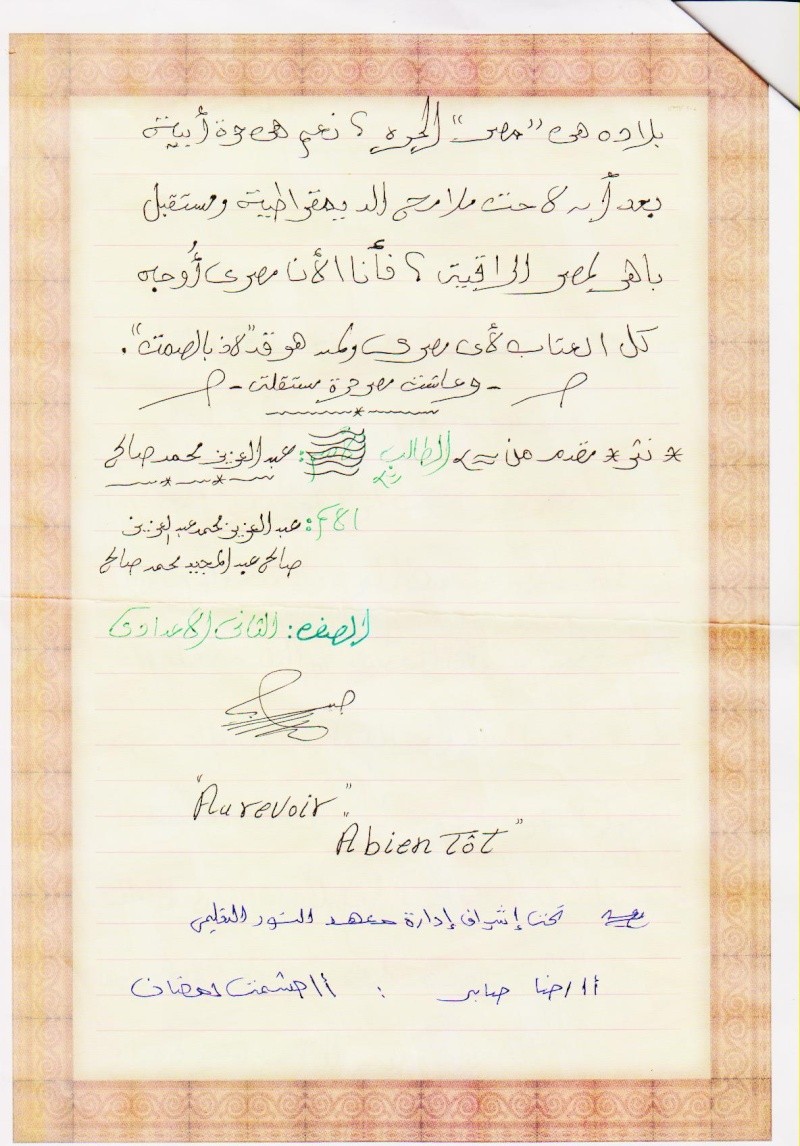 بلاده هى "مصر" الحره ؟ نعم هى حرة أبية
بعد أن لاحت ملامح الديمقراطية ومستقبل
باهى لمصر الراقية ؟ فأنا الأن مصرى أُوجه
كل العتاب لأى مصرى ولكن هو قد "لاذ بالصمت".
- وعاشت مصر حرة مستقلة -
* نثر * مقدم من الطالب : عبد العزيز محمد صالح
الاسم : عبد العزيز محمد عبد العزيز
صالح عبد المجيد محمد صالح
الصف : الثانى الأعدادى
"Au revoir"
A bien Tôt"
تحت إشراف إدارة معهد النور التعليمى
أ/ رضا صابر : أ/ حشمت رمضان